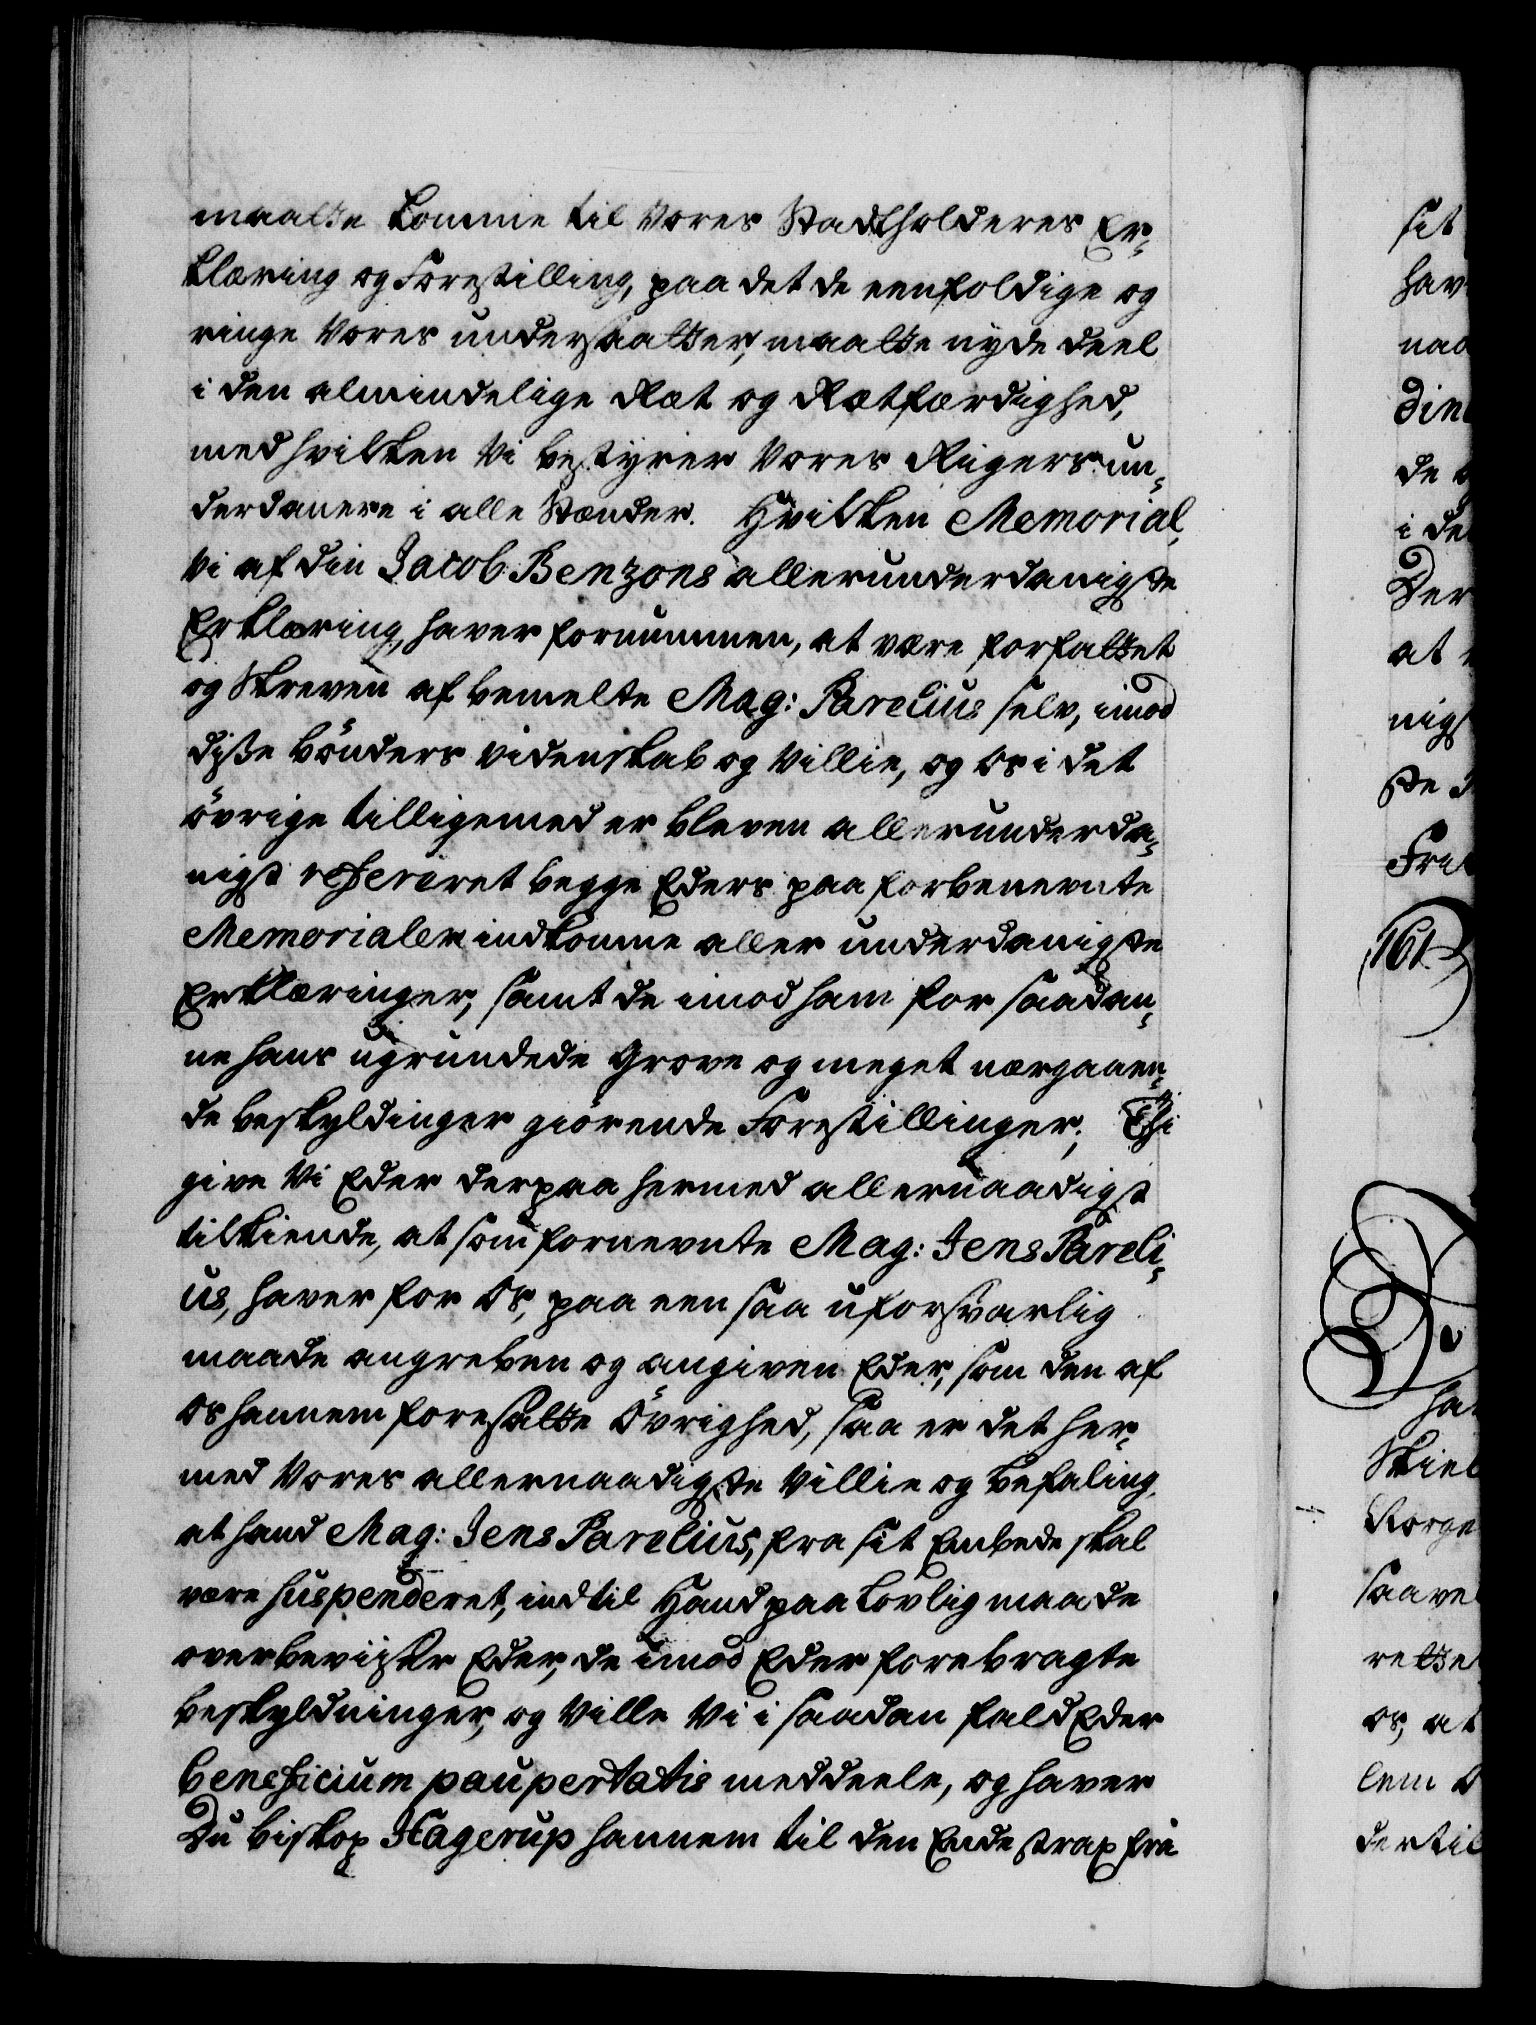 maatte komme til Vores Stadtholderes Er-
klæring og Forestilling, paa det de eenfoldige og
ringe Vores undersaatter, maatte nyde deel
i den almindelige Ræt og Rætfærdighed,
med hvilken Vi bestyrer Vores Rigers un-
derdanere i alle Stænder. Hvilken Memorial,
Vi af din Jacob Benzons allerunderdanigste
Erklæring, haver fornummen, at være forfattet
og Skreven af bemelte Mag: Parelius selv, imod
diße bönders videnskab og Villie, og Os i det
övrige tilligemed er bleven allerunderda-
nigst refereret begge Eders paa forbenevnte
Memorialer indkomne aller underdanigste
Erklæringer, samt de imod ham for saadan-
ne hans ugrundede Grove og meget nærgaaen-
de beskyldinger giörende Forestillinger; Thi
give Vi Eder derpaa hermed allernaadigst
tilkiende, at som fornevnte Mag: Jens Pareli-
us, haver for Os, paa een saa uforsvarlig
maade angreben og angiven Eder, som den af
Os hannem foresatte Övrighed, saa er det her-
med Vores allernaadigste Villie og befaling,
at hand Mag: Jens Parelius, fra sit Embede skal
være suspenderet, indtil Hand paa Lovlig maade
overbeviiser Eder, de imod Eder forebragte
beskyldninger, og Ville Vi i saadan fald Eder
beneficium paupertatis meddeele, og haver
Du biskop Hagerup hannem til den Ende strax fra
sit
hav
naa
din
de
i de
Der
at
nigs
ste
Fri
161
ha
Skiel
Norge
saave
rette
os, at
lem
dertil